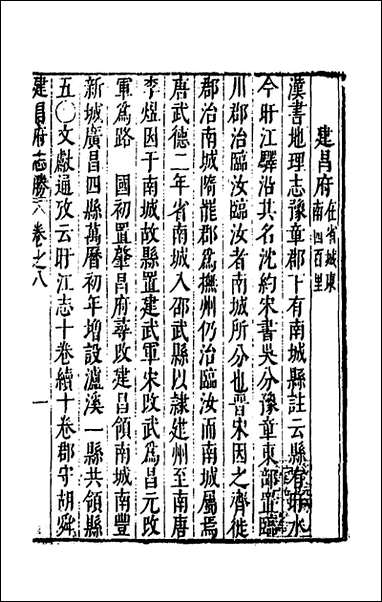 建昌府在省城東南四百里
漢書地理志豫章郡下有南城縣註云縣有盱水
今盱江驛沿其名沈約宋書吳分豫章東部置臨
川郡治臨汝臨汝者南城所分也晉宋因之齊徙
郡治南城隋罷郡為撫州仍治臨汝而南城屬焉
唐武德二年省南城入邵武縣以隸建州至南唐
李煜因于南城故縣置建武軍宋改武為昌元改
軍為路 國初置肇昌府尋改建昌領南城南豐
新城廣昌四縣萬曆初年增設瀘溪一縣共領縣
五○文獻通攷云盱江志十卷續十卷郡守胡舜
建昌府志勝 卷之八 一